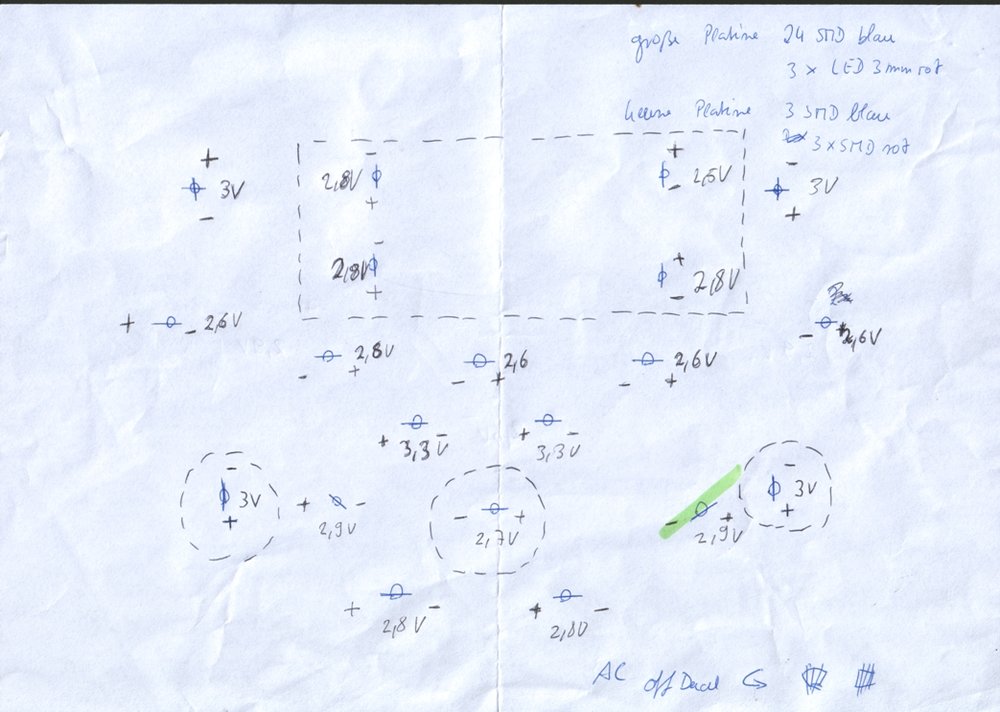 große Platine 24 SMD blau
3 x LED 3mm rot
kleine Platine 3 SMD blau
3 x SMD rot
+ - + -
3V 2,8V 2,5V 3V
- + - +
- +
2,8V 2,8V
+ -
+ - 2,6V
- 2,6V
2,8V 2,6 2,6V
- + - + - +
+ 3,3V - + 3,3V -
- 3V +
+ 2,9V -
- 2,7V +
- 2,9V +
- 3V +
+ 2,8V - + 2,8V -
AC off